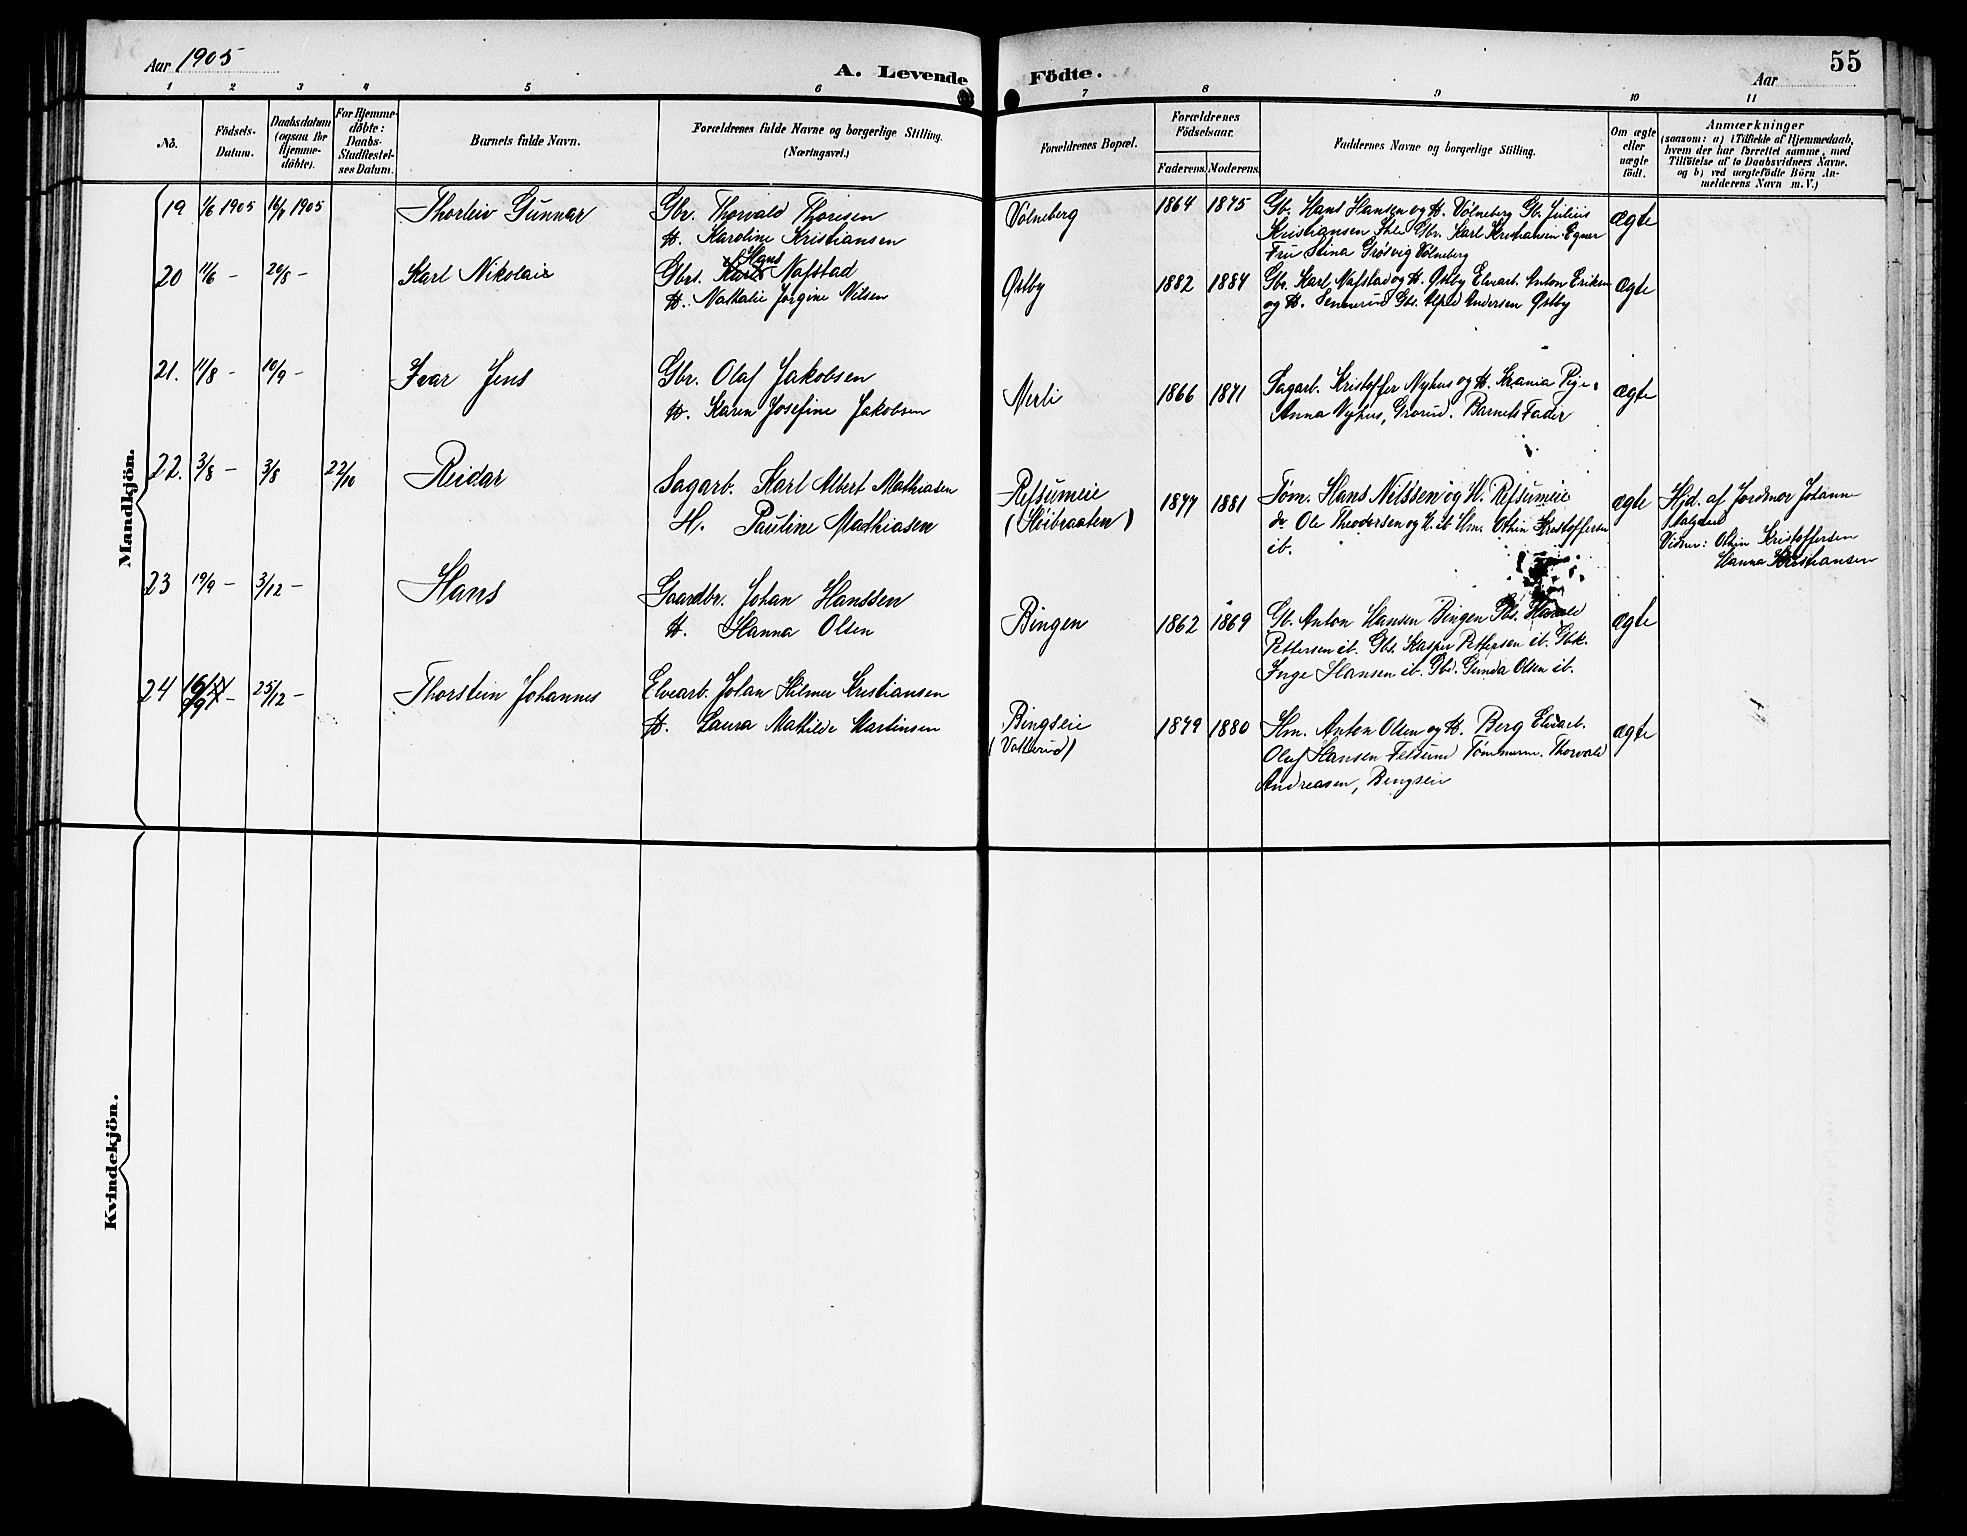 Aar 1905
A. Levende Födte.
Aar
55
1 2 3 4 5 6 7 8 9 10 11
No.
Födsels-Datum.
Daabsdatum (ogsaa for Hjemme-döbte).
For Hjemme-döbte: Daabs-Stadfæstel-ses Datum.
Barnets fulde Navn.
Forældrenes fulde Navne og borgerlige Stilling. (Næringsvei.)
Forældrenes Bopæl.
Forældrenes Födselsaar.
Faderens. Moderens.
Faddernes Navne og borgerlige Stilling.
Om ægte eller uægte födt.
Anmærkninger
(saasom: a) i Tilfælde af Hjemmedaab,
hvem der har forrettet samme, med
Tilföielse af to Daabsvidners Navne.
og b) ved uægtefödte Börn An-
melderens Navn m. V.)
Mandkjön.
19 1/6 1905 16/7 1905 Thorleiv Gunnar Gbr. Thorvald Thoresen Vølneberg 1864 1875 Gb. Hans Hansen og H. Vølneberg Gb. Julius ægte
H. Karoline Kristiansen Kristiansen Gbr. Karl Kristiansen Egner
Fru Stina Grøsvig Vølneberg
20 11/6 – 20/8 – Karl Nikolaie Gbr. Hans Nafstad Østby 1882 1884 Gbr. Karl Nafstad og H. Østby Elvearb. Anton Eriksen ægte
H. Nathalie Jørgine Nilsen og H. Gbs. Alfred Andersen Østby
21. 11/8 – 10/9 – Ivar Jens Gbr. Olaf Jakobsen Merli 1866 1871 Sagarb. Kristoffer Nyhus og H. Pige. ægte
H. Karen Josefine Jakobsen Anna Nyhus, Grorud. Barnets Fader
22. 3/8 – 3/8 22/10 Reidar Sagarb. Karl Albert Mathiasen Refsumeie 1877 1881 Tøm. Hans Nilssen og H. Refsumeie ægte Hjd. af Jordmor Johanne
H. Pauline Mathiasen (Høibraaten) do Ole Theodorsen og H. ib. Hm. Othin Kristoffersen
ib. Vidner: Othin Kristoffersen
Hanna Kristiansen
23 19/9 – 3/12 – Hans Gaardbr. Johan Hanssen Bingen 1862 1869 Gb. Anton Hansen Bingen Gbs. Harald ægte
H. Hanna Olsen Pettersen ib. Gbs. Kasper Pettersen ib. Gbk.
Inge Hansen ib. Gbd. Gunda Olsen ib.
24 25/12 – Thorstein Johannes Elvearb. Johan Hilmer Kristiansen Bingseie 1879 1880 Hm. Anton Olsen og H. Berg Elvearb. ægte
H. Laura Mathilde Martinsen Olaf Hansen Tømmerm. Thorvald
Andreasen, Bingseie
Kvindekjön.